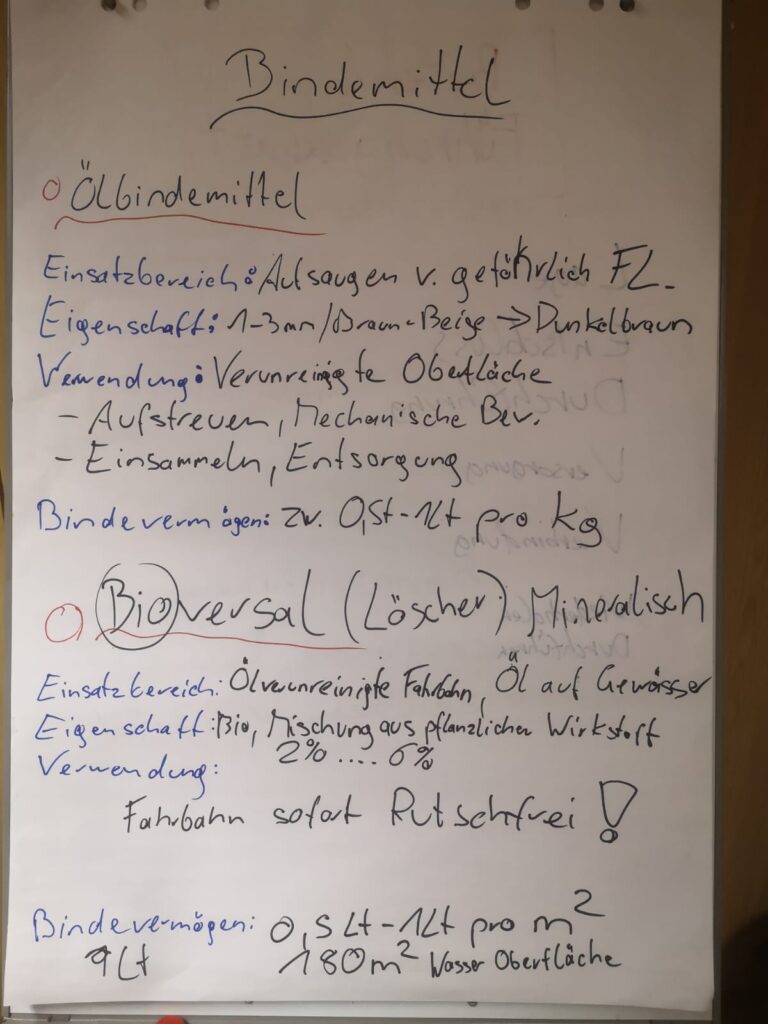 Bindemittel
Ölbindemittel
Einsatzbereich: Aufsaugen v. gefährlich FL.
Eigenschaft: 1-3mm/Braun-Beige → Dunkelbraun
Verwendung: Verunreinigte Oberfläche
- Aufstreuen, Mechanische Bev.
- Einsammeln, Entsorgung
Bindevermögen: zw. 0,5t-1Lt pro kg
Bioversal (Löscher) Mineralisch
Einsatzbereich: Ölverunreinigte Fahrbahn, Öl auf Gewässer
Eigenschaft: Bio, Mischung aus pflanzlichen Wirkstoff
Verwendung: 2% .... 6%
Fahrbahn sofort Rutschfrei!
Bindevermögen: 0,5Lt-1Lt pro m²
9Lt 180m² Wasser Oberfläche